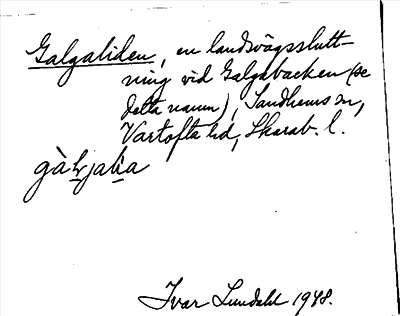 Galgaliden, en landsvägsslutt-
ning vid Galgabacken (se
detta namn), Sandhems sn,
Vartofta hd, Skarab. l.
gàl̥jalia
Ivar Lundahl 1948.